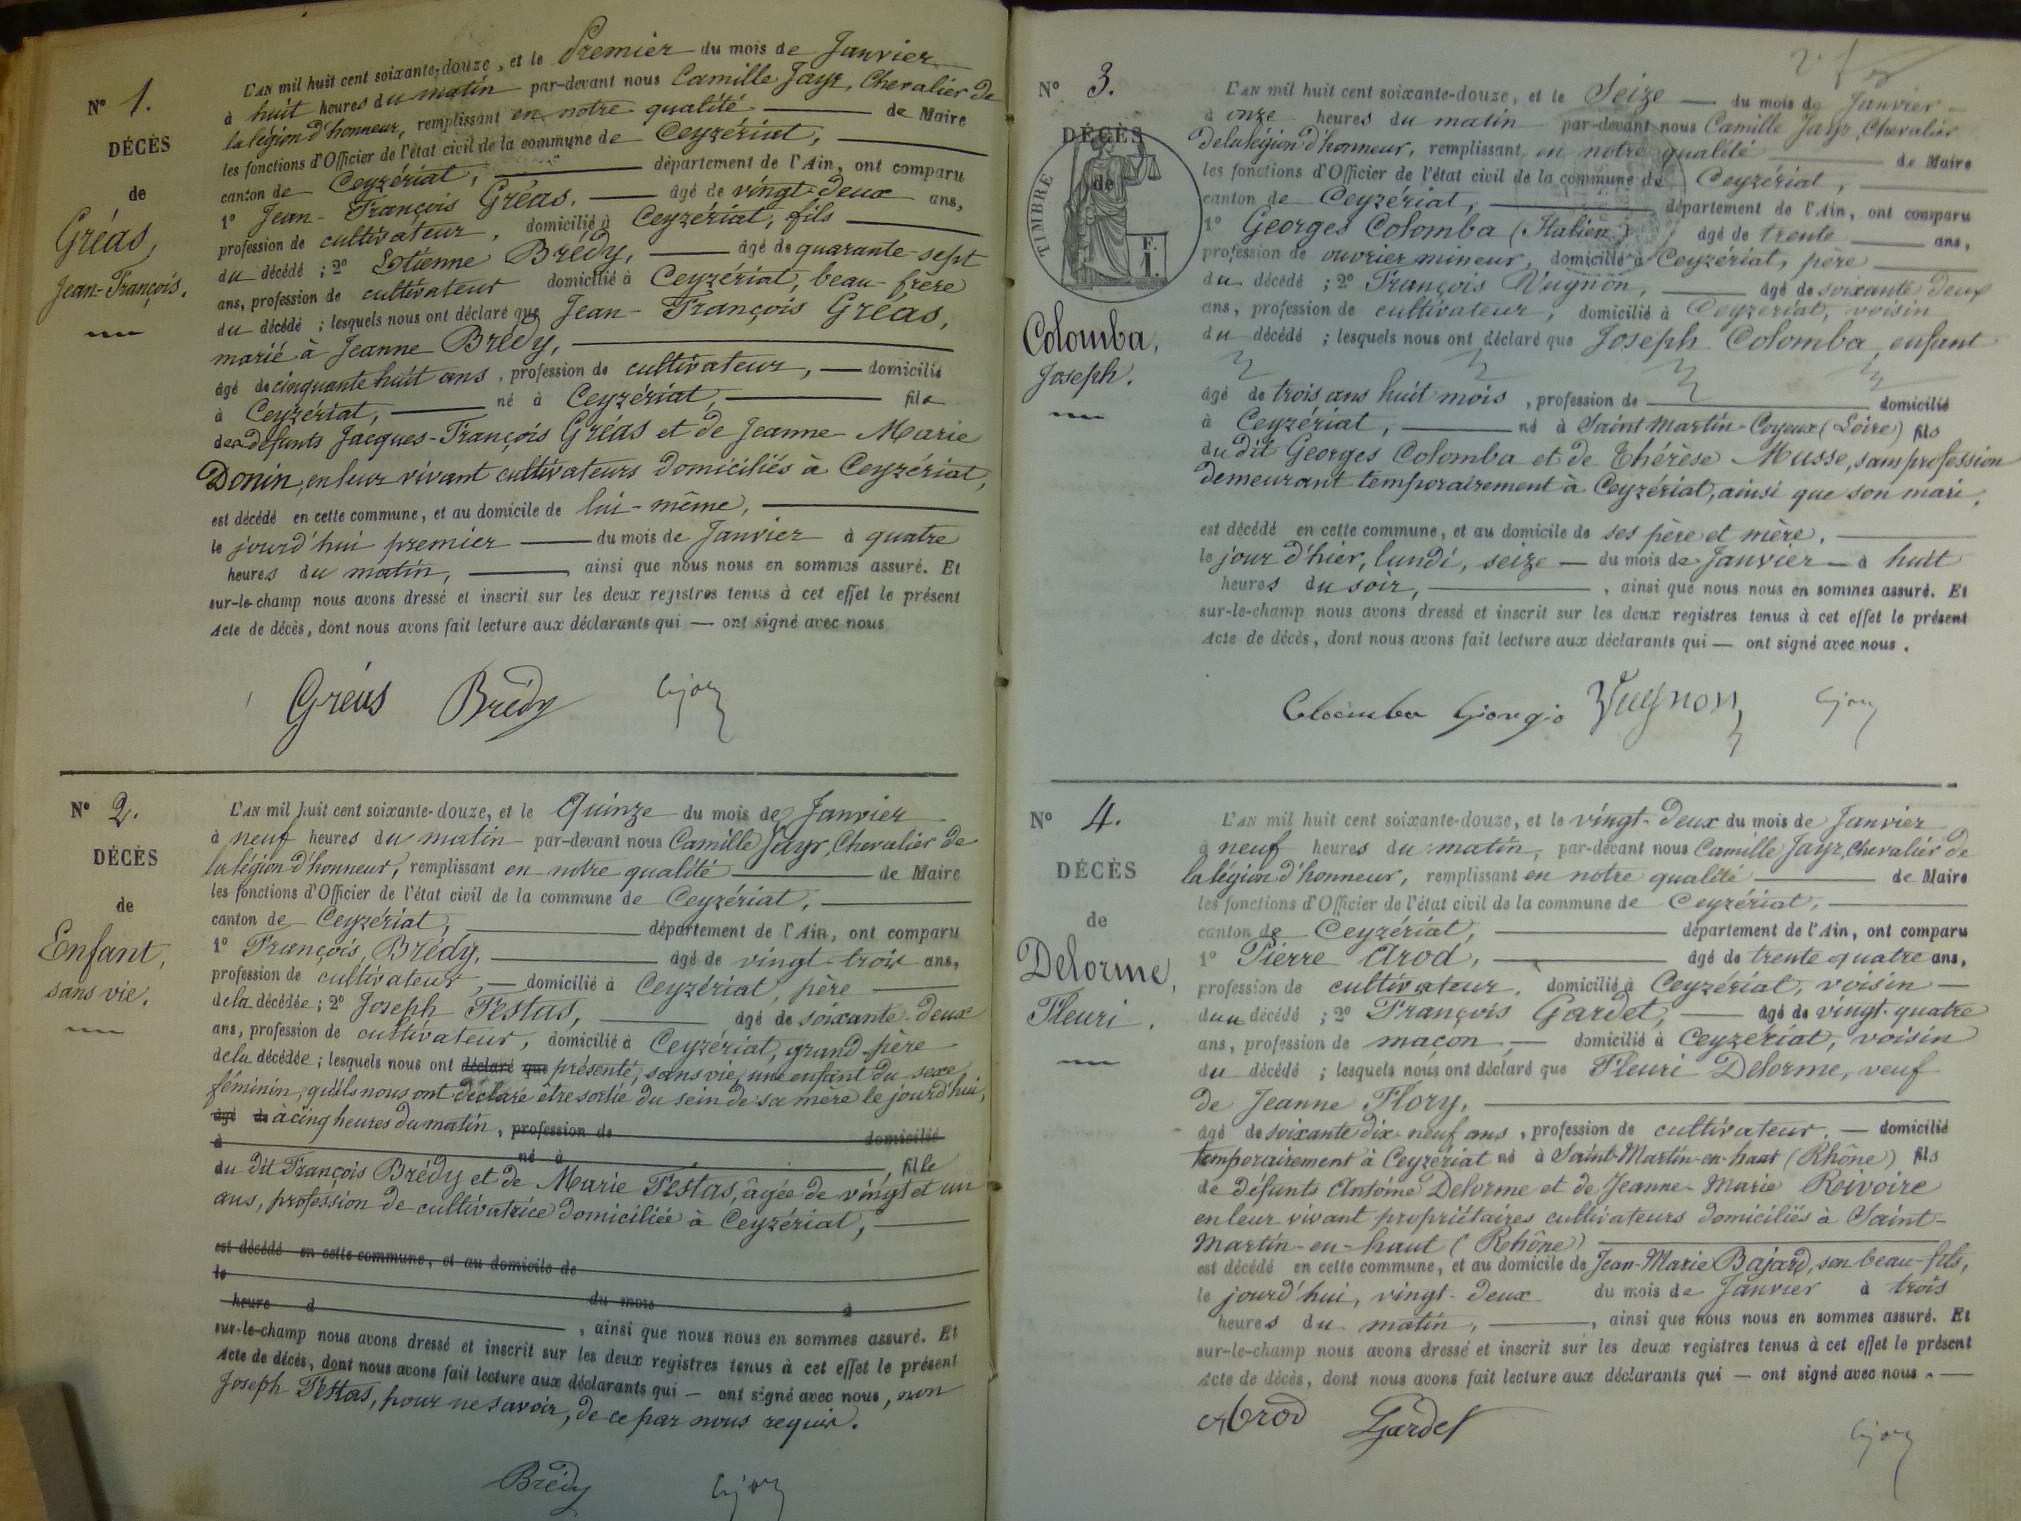 N° 1.
DÉCÈS
de
Gréas,
Jean-François.
L'AN mil huit cent soixante-douze, et le Premier du mois de Janvier
à huit heures du matin par-devant nous Camille Jayr, Chevalier de
la légion d'honneur, remplissant en notre qualité de Maire
les fonctions d'Officier de l'état civil de la commune de Ceyzériat,
canton de Ceyzériat, département de l'Ain, ont comparu
1° Jean-François Gréas, âgé de vingt-deux ans,
profession de cultivateur, domicilié à Ceyzériat, fils
du décédé ; 2° Etienne Brédy, âgé de quarante-sept
ans, profession de cultivateur domicilié à Ceyzériat, beau-frère
du décédé ; lesquels nous ont déclaré que Jean-François Gréas,
marié à Jeanne Brédy,
âgé de cinquante huit ans, profession de cultivateur, domicilié
à Ceyzériat, né à Ceyzériat, fils
des défunts Jacques-François Gréas et de Jeanne-Marie
Donin, en leur vivant cultivateurs domiciliés à Ceyzériat,
est décédé en cette commune, et au domicile de lui-même,
le jourd'hui premier du mois de Janvier à quatre
heures du matin, ainsi que nous nous en sommes assuré. Et
sur-le-champ nous avons dressé et inscrit sur les deux registres tenus à cet effet le présent
Acte de décès, dont nous avons fait lecture aux déclarants qui — ont signé avec nous
Gréas Brédy
N° 2.
DÉCÈS
de
Enfant,
sans vie.
L'AN mil huit cent soixante-douze, et le Quinze du mois de Janvier
à neuf heures du matin par-devant nous Camille Jayr, Chevalier de
la légion d'honneur, remplissant en notre qualité de Maire
les fonctions d'Officier de l'état civil de la commune de Ceyzériat,
canton de Ceyzériat, département de l'Ain, ont comparu
1° François Brédy, âgé de vingt-trois ans,
profession de cultivateur, domicilié à Ceyzériat, père
de la décédée ; 2° Joseph Festas, âgé de soixante-deux
ans, profession de cultivateur, domicilié à Ceyzériat, grand-père
de la décédée ; lesquels nous ont déclaré que présenté, sans vie, une enfant du sexe
féminin, qu'ils nous ont déclaré être sortie du sein de sa mère le jourd'hui,
âgé de à cinq heures du matin, profession de domicilié
à né à , fille
du dit François Brédy et de Marie Festas, âgée de vingt et un
ans, profession de cultivatrice domiciliée à Ceyzériat,
est décédé en cette commune, et au domicile de
le
heure d du mois à
, ainsi que nous nous en sommes assuré. Et
sur-le-champ nous avons dressé et inscrit sur les deux registres tenus à cet effet le présent
Acte de décès, dont nous avons fait lecture aux déclarants qui — ont signé avec nous, non
Joseph Festas, pour ne savoir, de ce par nous requis.
Brédy
N° 3.
DÉCÈS
de
TIMBRE
F.
1.
Colomba,
Joseph.
L'AN mil huit cent soixante-douze, et le Seize du mois de Janvier
à onze heures du matin par-devant nous Camille Jayr, Chevalier
de la légion d'honneur, remplissant en notre qualité de Maire
les fonctions d'Officier de l'état civil de la commune de Ceyzériat,
canton de Ceyzériat, département de l'Ain, ont comparu
1° Georges Colomba (Italien), âgé de trente ans,
profession de ouvrier mineur, domicilié à Ceyzériat, père
du décédé ; 2° François Vugnon, âgé de soixante deux
ans, profession de cultivateur, domicilié à Ceyzériat, voisin
du décédé ; lesquels nous ont déclaré que Joseph Colomba, enfant
âgé de trois ans huit mois, profession de domicilié
à Ceyzériat, né à Saint Martin-Coyeux (Loire) fils
du dit Georges Colomba et de Thérèse Musse, sans profession
demeurant temporairement à Ceyzériat, ainsi que son mari,
est décédé en cette commune, et au domicile de ses père et mère,
le jour d'hier, lundi, seize du mois de Janvier à huit
heures du soir, , ainsi que nous nous en sommes assuré. Et
sur-le-champ nous avons dressé et inscrit sur les deux registres tenus à cet effet le présent
Acte de décès, dont nous avons fait lecture aux déclarants qui — ont signé avec nous.
Colomba Giorgio Vugnon
N° 4.
DÉCÈS
de
Delorme,
Fleuri.
L'AN mil huit cent soixante-douze, et le vingt-deux du mois de Janvier
à neuf heures du matin, par-devant nous Camille Jayr, Chevalier de
la légion d'honneur, remplissant en notre qualité de Maire
les fonctions d'Officier de l'état civil de la commune de Ceyzériat,
canton de Ceyzériat, département de l'Ain, ont comparu
1° Pierre Arod, âgé de trente quatre ans,
profession de cultivateur, domicilié à Ceyzériat, voisin
du décédé ; 2° François Gardet, âgé de vingt-quatre
ans, profession de maçon, domicilié à Ceyzériat, voisin
du décédé ; lesquels nous ont déclaré que Fleuri Delorme, veuf
de Jeanne Flory,
âgé de soixante dix-neuf ans, profession de cultivateur, domicilié
temporairement à Ceyzériat né à Saint-Martin-en-haut (Rhône) fils
de défunts Antoine Delorme et de Jeanne-Marie Reivoire
en leur vivant propriétaires cultivateurs domiciliés à Saint-
Martin-en-haut (Rhône)
est décédé en cette commune, et au domicile de Jean-Marie Bajard, son beau-fils,
le jourd'hui, vingt-deux du mois de Janvier à trois
heures du matin, , ainsi que nous nous en sommes assuré. Et
sur-le-champ nous avons dressé et inscrit sur les deux registres tenus à cet effet le présent
Acte de décès, dont nous avons fait lecture aux déclarants qui — ont signé avec nous.
Arod Gardet